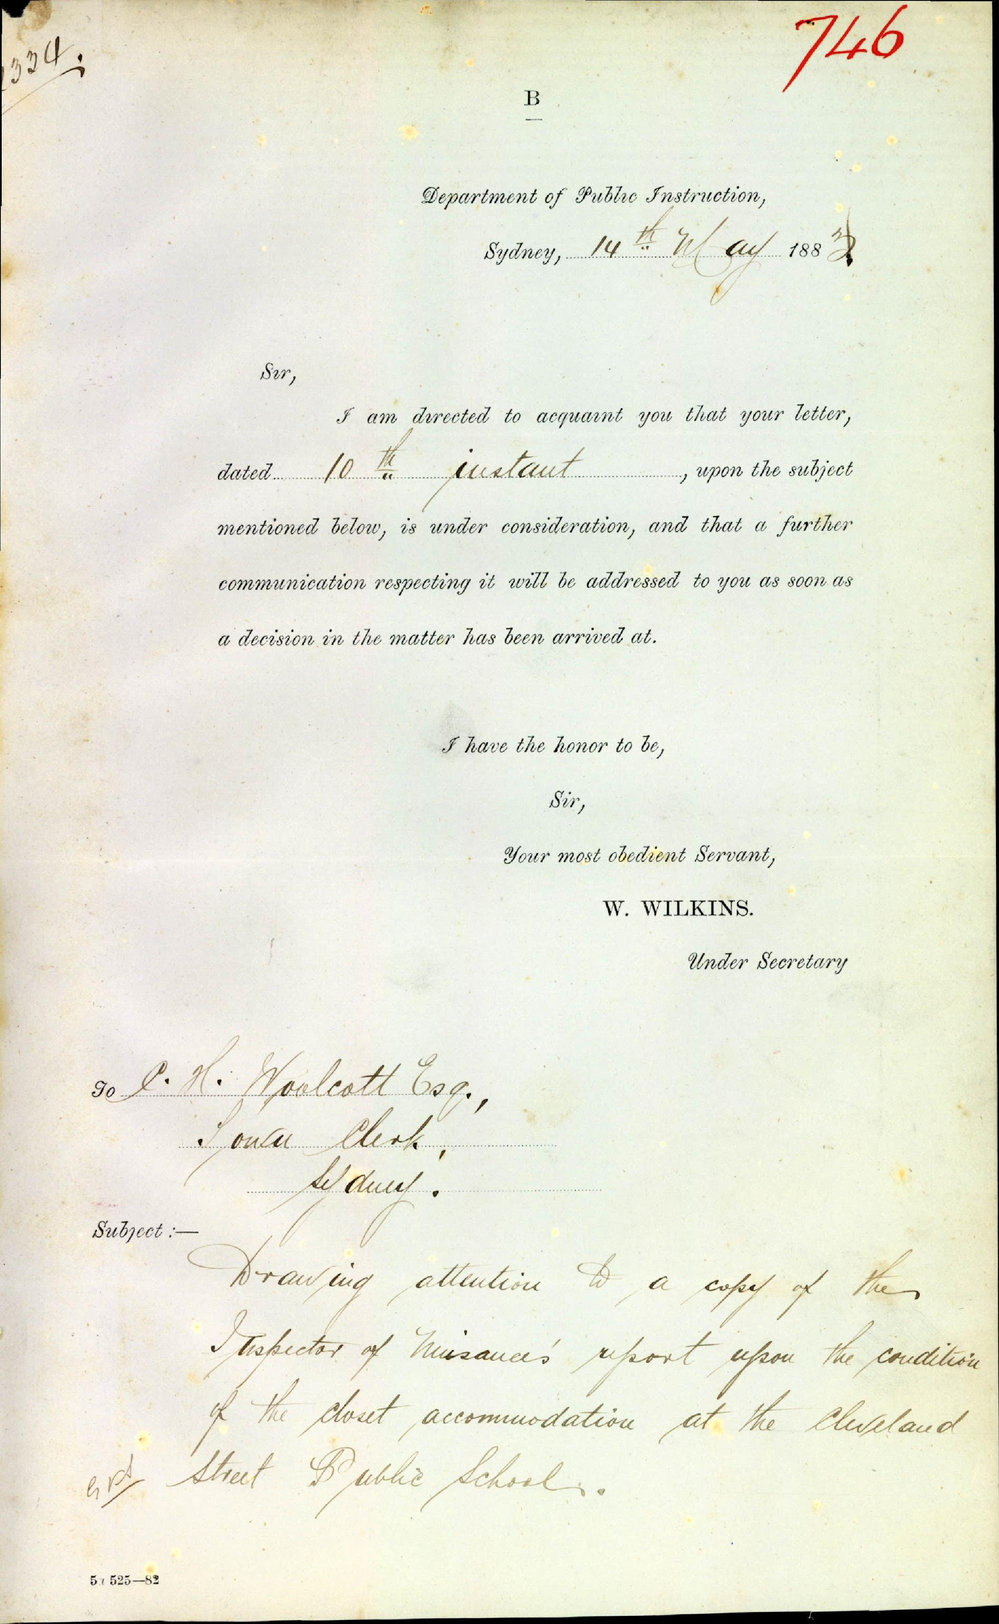 334.
746
B
Department of Public Instruction,
Sydney, 14th May 1883
Sir,
I am directed to acquaint you that your letter,
dated 10th instant, upon the subject
mentioned below, is under consideration, and that a further
communication respecting it will be addressed to you as soon as
a decision in the matter has been arrived at.
I have the honor to be,
Sir,
Your most obedient Servant,
W. WILKINS.
Under Secretary
To C. H. Woolcott Esq.,
Town Clerk,
Sydney.
Subject:—
Drawing attention to a copy of the
Inspector of Nuisances's report upon the condition
of the closet accommodation at the Cleveland
Street Public School.
525—82